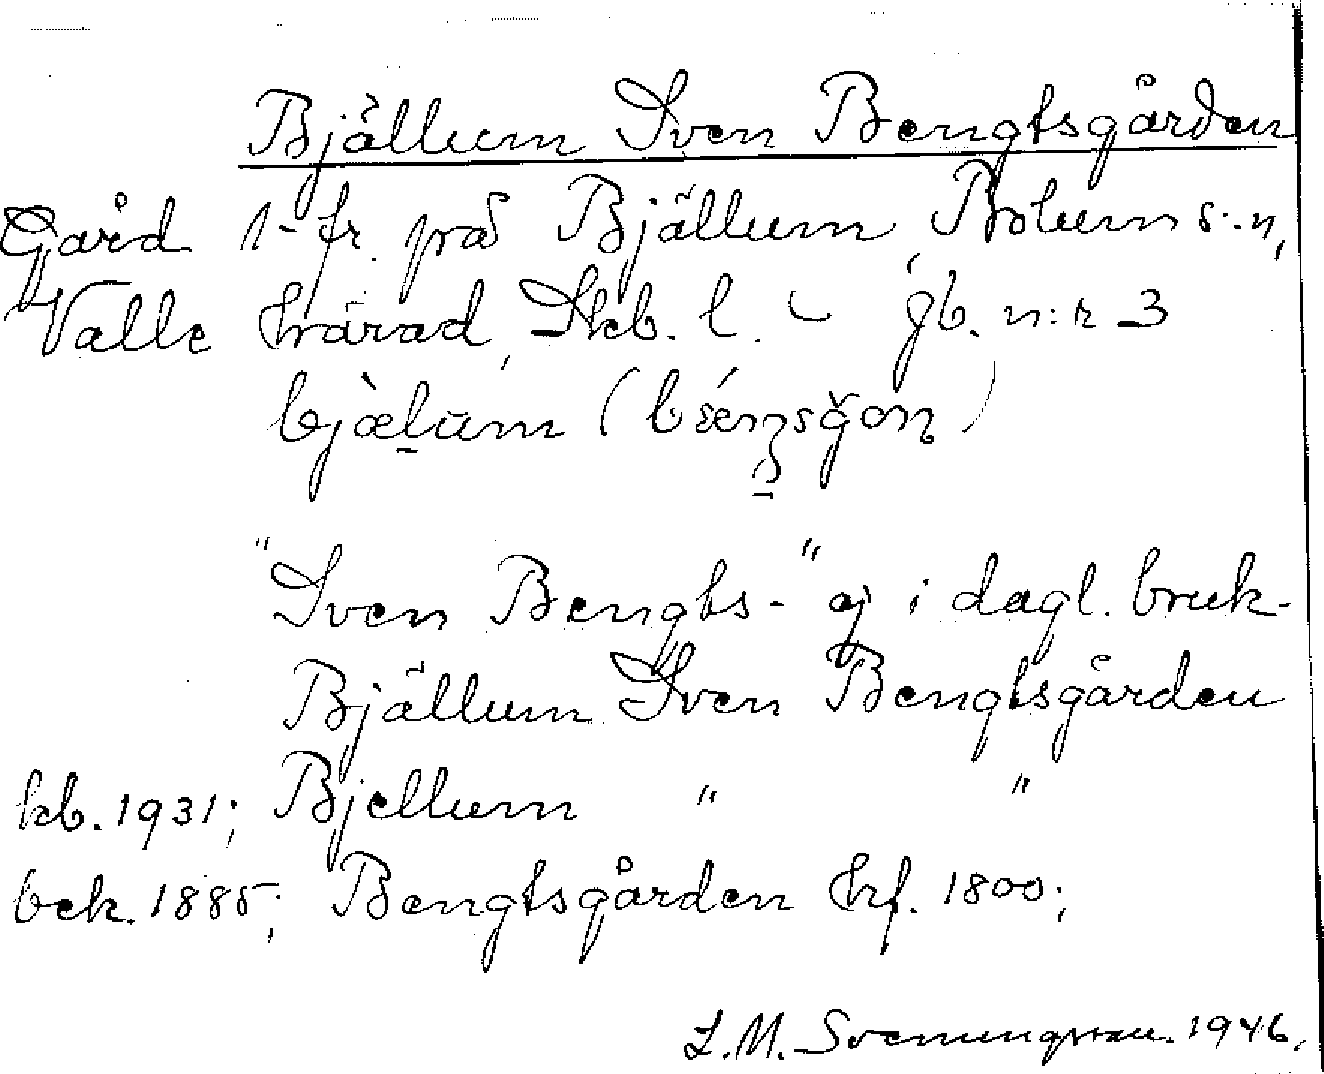 Bjällum Sven Bengtsgården
Gård 1-fr. på Bjällum, Bolum s:n,
Valle härad, Skb. l. – jb. n:r 3
bjæ̀lùm (
"Sven Bengts-" ej i dagl. bruk-
Bjällum Sven Bengtsgården
kb. 1931; Bjellum " "
bek. 1885; Bengtsgården hf. 1800;
L.M. Svenungsson. 1946.